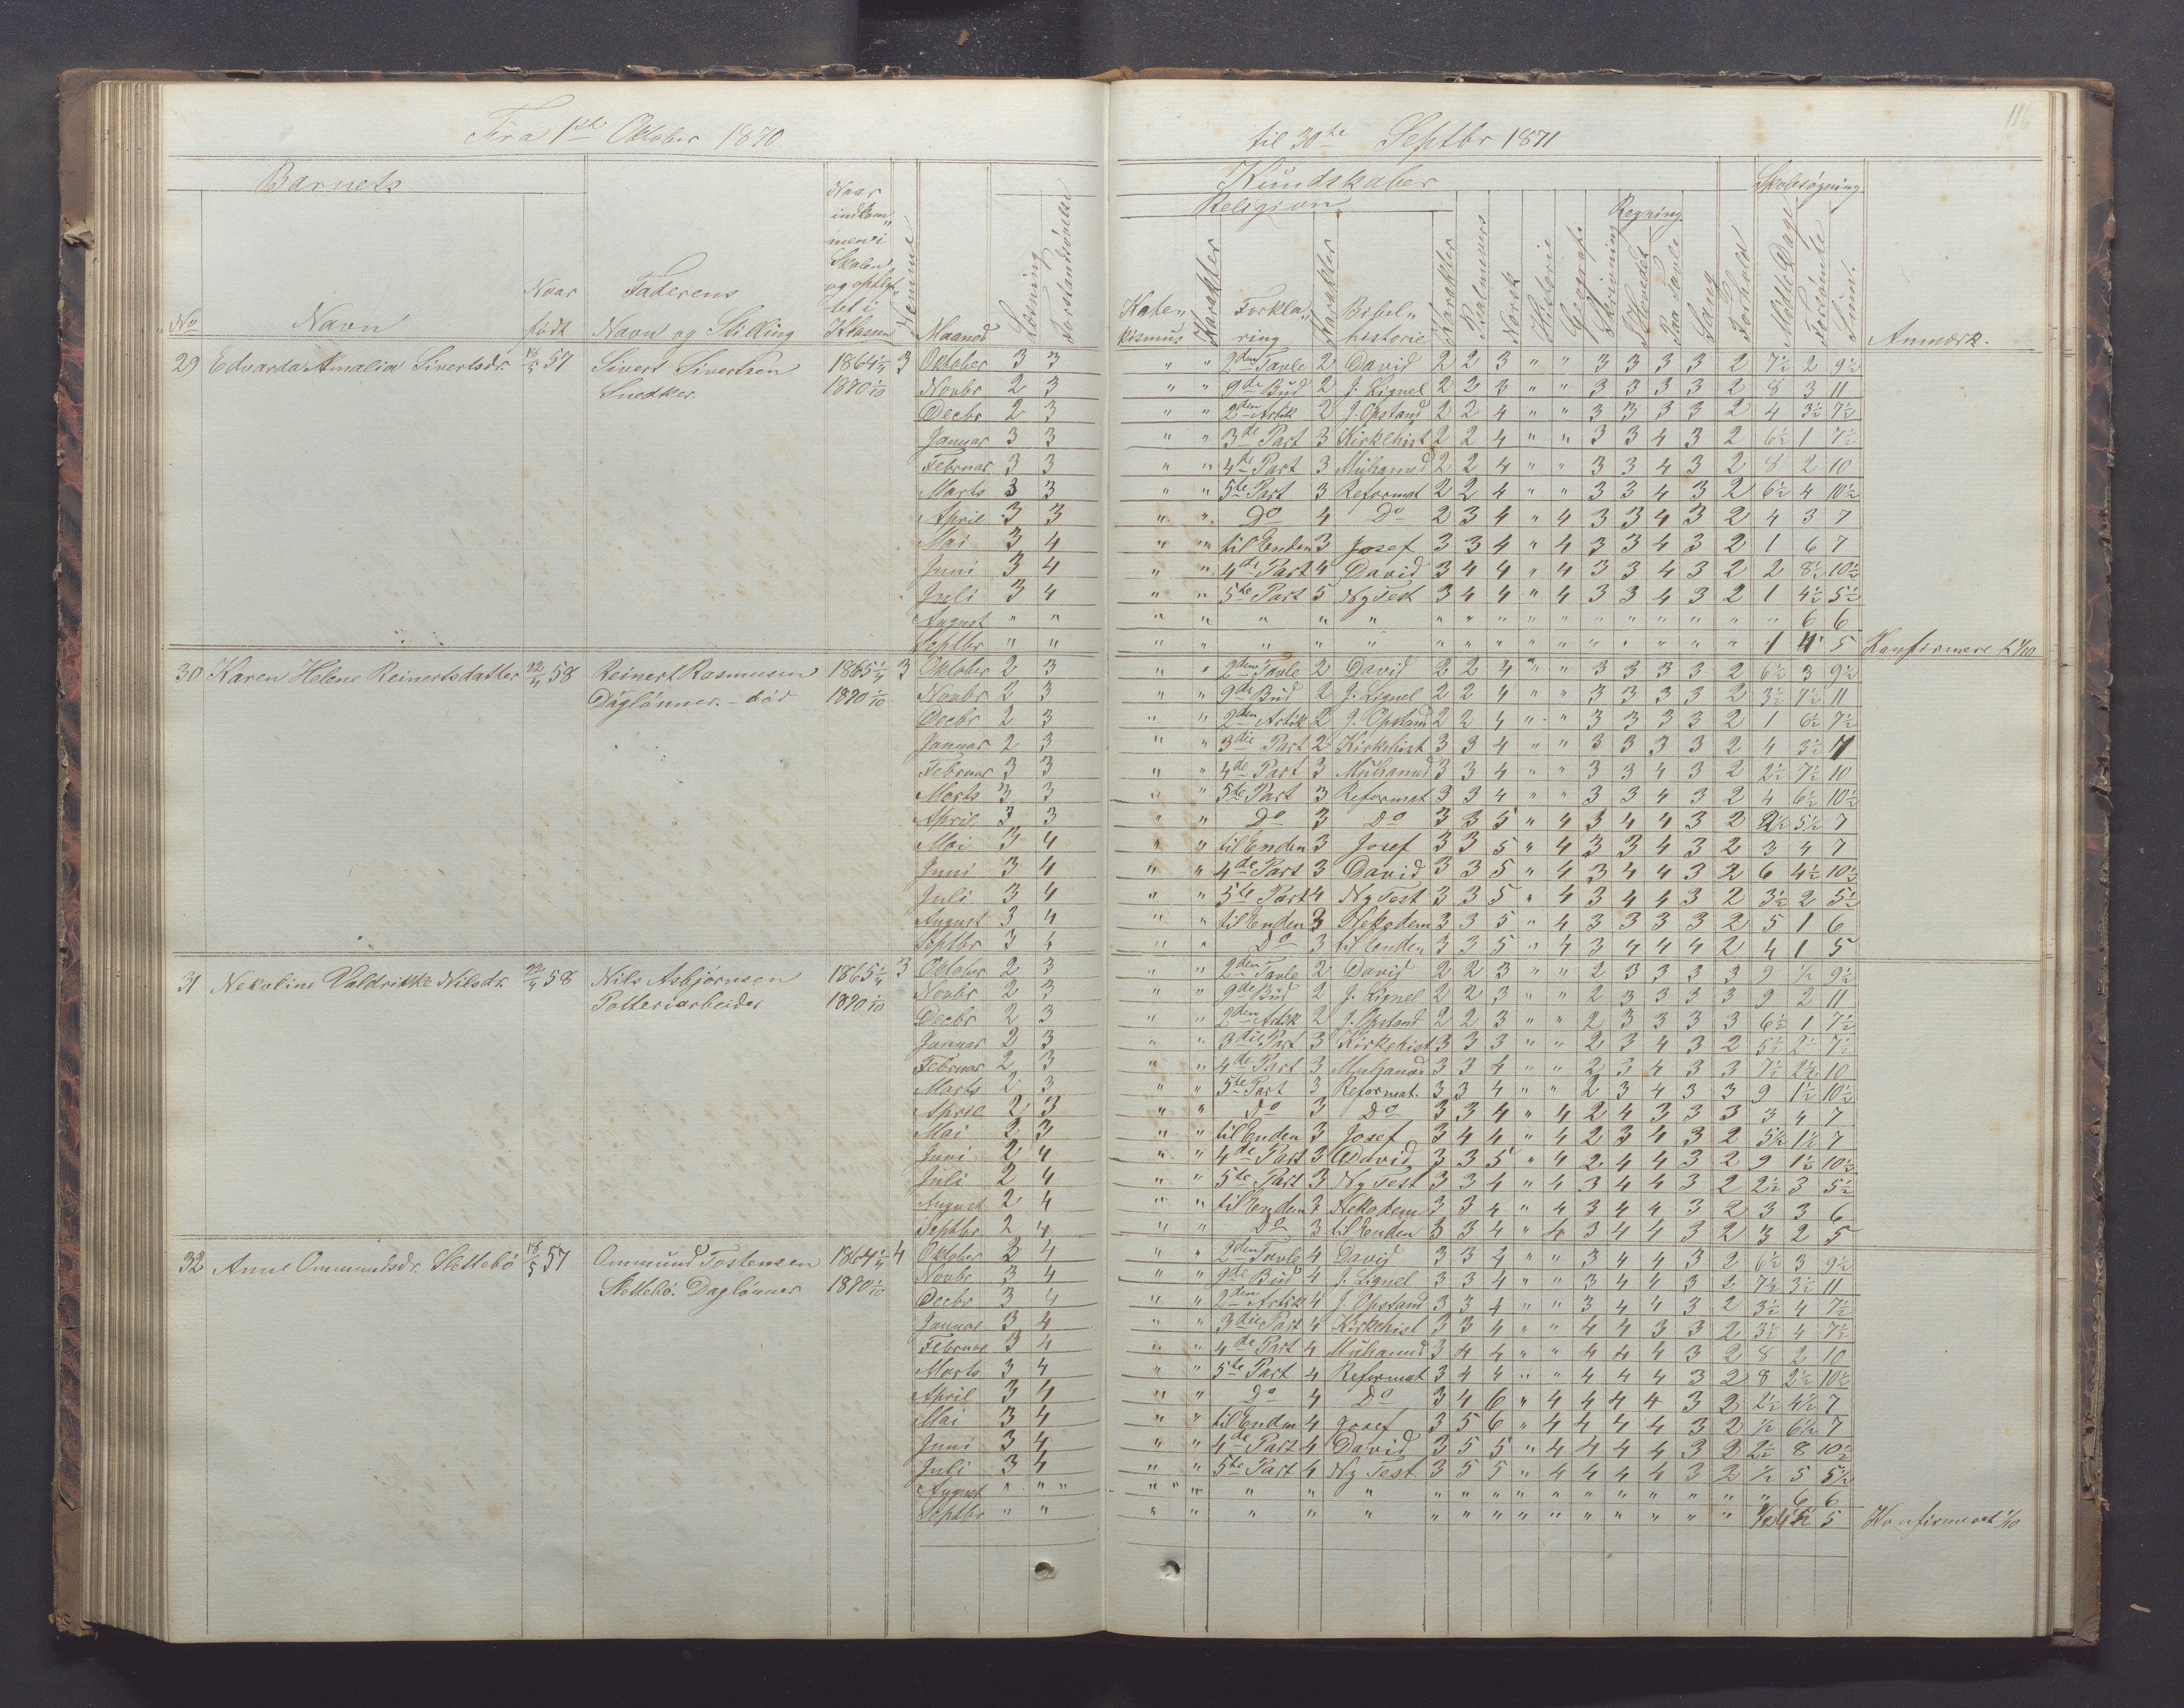 116
Fra 1ste Oktober 1870 til 30te Septbr 1871
Barnets
Kundskaber
Skolesøgning
Religion
Regning
No
Navn
Naar født
Faderens Navn og Stilling
Naar indkommen i Skolen og opflyttet i Klassen
Maaned
Læsning
Forstandsøvelse
Katekismus
Karakter
Forklaring
Karakter
Bibelhistorie
Karakter
Psalmevers
Norsk
Historie
Geografi
Skrivning
I Hovedet
Paa Tavle
Sang
Forhold
Mødte Dage
Forsømte
Sum.
Anmærk.
29 Edvarda Amalia Sivertsdr. 57 Sivert Sivertsen 1864 3 Oktober 3 3 " " 2den Tavle 2 David 2 2 3 " " 3 3 3 3 2 7½ 2 9½
Snedker. 1870 1/10 Novbr 2 3 " " 9de Bud 2 J. Lignel 2 2 3 " " 3 3 3 3 2 8 3 11
Decbr 2 3 " " 2den Artik 2 J. Opstand 2 2 4 " " 3 3 3 3 2 4 3½ 7½
Januar 3 3 " " 3die Part 3 Kirkehist 2 2 4 " " 3 3 4 3 2 6½ 1 7½
Februar 3 3 " " 4de Part 3 Muhamed 2 2 4 " " 3 3 4 3 2 8 2 10
Marts 3 3 " " 5te Part 3 Reformat 2 2 4 " " 3 3 4 3 2 6½ 4 10½
April 3 3 " " Do 4 Do 2 3 4 " 4 3 3 4 3 2 4 3 7
Mai 3 4 " " til Enden 3 Josef 3 3 4 " 4 3 3 4 3 2 1 6 7
Juni 3 4 " " 4de Part 4 David 3 4 4 " 4 3 3 4 3 2 2 8½ 10½
Juli 3 4 " " 5te Part 5 Ny Test 3 4 4 " 4 3 3 4 3 2 1 4½ 5½
August " " " " " " " " " " " " " " " " " " " 6 6
Septbr " " " " " " " " " " " " " " " " " " 1 4 5 Konfirmere 1/10
30 Karen Helene Reinertsdatter 22/4 58 Reinert Rasmusen 1865 3 Oktober 2 3 " " 2den Tavle 2 David 2 2 4 " " 3 3 3 3 2 6½ 3 9½
Daglønner. - död 1870 1/10 Novbr 2 3 " " 9de Bud 2 J. Lignel 2 2 4 " " 3 3 3 3 2 3½ 7½ 11
Decbr 2 3 " " 2den Artik 2 J. Opstand 2 2 4 " " 3 3 3 3 2 1 6½ 7½
Januar 2 3 " " 3die Part 2 Kirkehist 3 3 4 " " 3 3 3 3 2 4 3½
Februar 3 3 " " 4de Part 3 Muhamed 3 3 4 " " 3 3 4 3 2 2½ 7½ 10
Marts 3 3 " " 5te Part 3 Reformat 3 3 4 " " 3 3 4 3 2 4 6½ 10½
April 3 3 " " Do 3 Do 3 3 5 " 4 3 4 4 3 2 5½ 7
Mai 3 4 " " til Enden 3 Josef 3 3 5 " 4 3 3 4 3 2 3 4 7
Juni 3 4 " " 4de Part 3 David 3 3 5 " 4 3 4 4 3 2 6 4½ 10½
Juli 3 4 " " 5te Part 4 Ny Test 3 3 5 " 4 3 4 4 3 2 3½ 2 5½
August 3 4 " " til Enden 3 Nekodem 3 3 5 " 4 3 3 3 3 2 5 1 6
Septbr 3 4 " " Do 3 til Enden 3 3 5 " 4 3 4 4 4 2 4 1 5
31 Nekoline Valdrikke Nilsdr. 22/4 58 Nils Asbjørnsen 1865 3 Oktober 2 3 " " 2den Tavle 2 David 2 2 3 " " 2 3 3 3 3 9 ½ 9½
Potteriarbeider 1870 1/10 Novbr 2 3 " " 9de Bud 2 J. Lignel 2 2 3 " " 2 3 3 3 3 9 2 11
Decbr 2 3 " " 2den Artik 2 J. Opstand 2 2 3 " " 2 3 3 3 3 6½ 1 7½
Januar 2 3 " " 3die Part 3 Kirkehist 3 3 3 " " 2 3 4 3 2 5½ 2 7½
Februar 2 3 " " 4de Part 3 Muhamed 3 3 4 " " 2 3 4 3 3 7½ 2½ 10
Marts 2 3 " " 5te Part 3 Reformat. 3 3 4 " " 2 3 4 3 3 9 1½ 10½
April 2 3 " " Do 3 Do 3 3 4 " 4 2 4 3 3 3 3 4 7
Mai 2 3 " " til Enden 3 Josef 3 4 4 " 4 2 3 4 3 2 5½ 1½ 7
Juni 2 4 " " 4de Part 3 David 3 3 5 " 4 2 4 4 3 2 9 1½ 10½
Juli 2 4 " " 5te Part 3 Ny Test 3 3 4 " 4 3 4 4 3 2 2½ 3 5½
August 2 4 " " til Enden 3 Nekodem 3 3 4 " 4 3 4 4 3 2 3 3 6
Septbr 2 4 " " Do 3 til Enden 3 3 4 " 4 3 4 4 3 2 3 2 5
32 Anne Ommundsdr. Slettebø 57 Ommund Tostensen 1864 4 Oktober 2 4 " " 2den Tavle 4 David 3 3 4 " " 3 4 4 3 2 6½ 3 9½
Slettebø. Daglønner 1870 1/10 Novbr 3 4 " " 9de Bud 4 J. Lignel 3 3 4 " " 3 4 4 3 2 7½ 3½ 11
Decbr 3 4 " " 2den Artik 4 J. Opstand 3 3 4 " " 3 4 4 3 2 3½ 4 7½
Januar 3 4 " " 3die Part 4 Kirkehist 3 3 4 " " 4 4 3 3 2 3½ 4 7½
Februar 3 4 " " 4de Part 4 Muhamed 3 4 4 " " 4 4 4 3 2 8 2 10
Marts 3 4 " " 5te Part 4 Reformat 3 4 4 " " 4 4 4 3 2 8 2½ 10½
April 3 4 " " Do 4 Do 3 4 6 " 4 4 4 4 3 2 2½ 4½ 7
Mai 3 4 " " til Enden 4 Josef 3 5 6 " 4 4 4 4 3 2 ½ 6½ 7
Juni 3 4 " " 4de Part 4 David 3 5 5 " 4 4 4 4 3 2 2½ 8 10½
Juli 3 4 " " 5te Part 4 Ny Test 3 5 5 " 4 4 4 4 3 2 ½ 5 5½
August " " " " " " " " " " " " " " " " " " " " 6 6
Septbr " " " " " " " " " " " " " " " " " " ½ 4½ 5 Konfirmeret 1/10